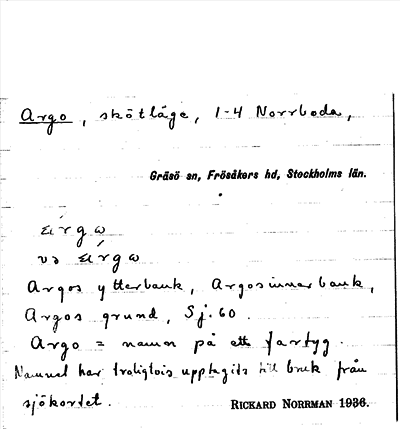 Argo, skötläge, 1-4 Norrboda,
Gräsö sn, Frösåkers hd, Stockholms län.
árgω
va árgω
Argos ytterbank, Argos innerbank,
Argos grund, Sj. 60.
Argo = namn på ett fartyg.
Namnet har troligtvis upptagits till bruk från
sjökortet. RICKARD NORRMAN 1936.